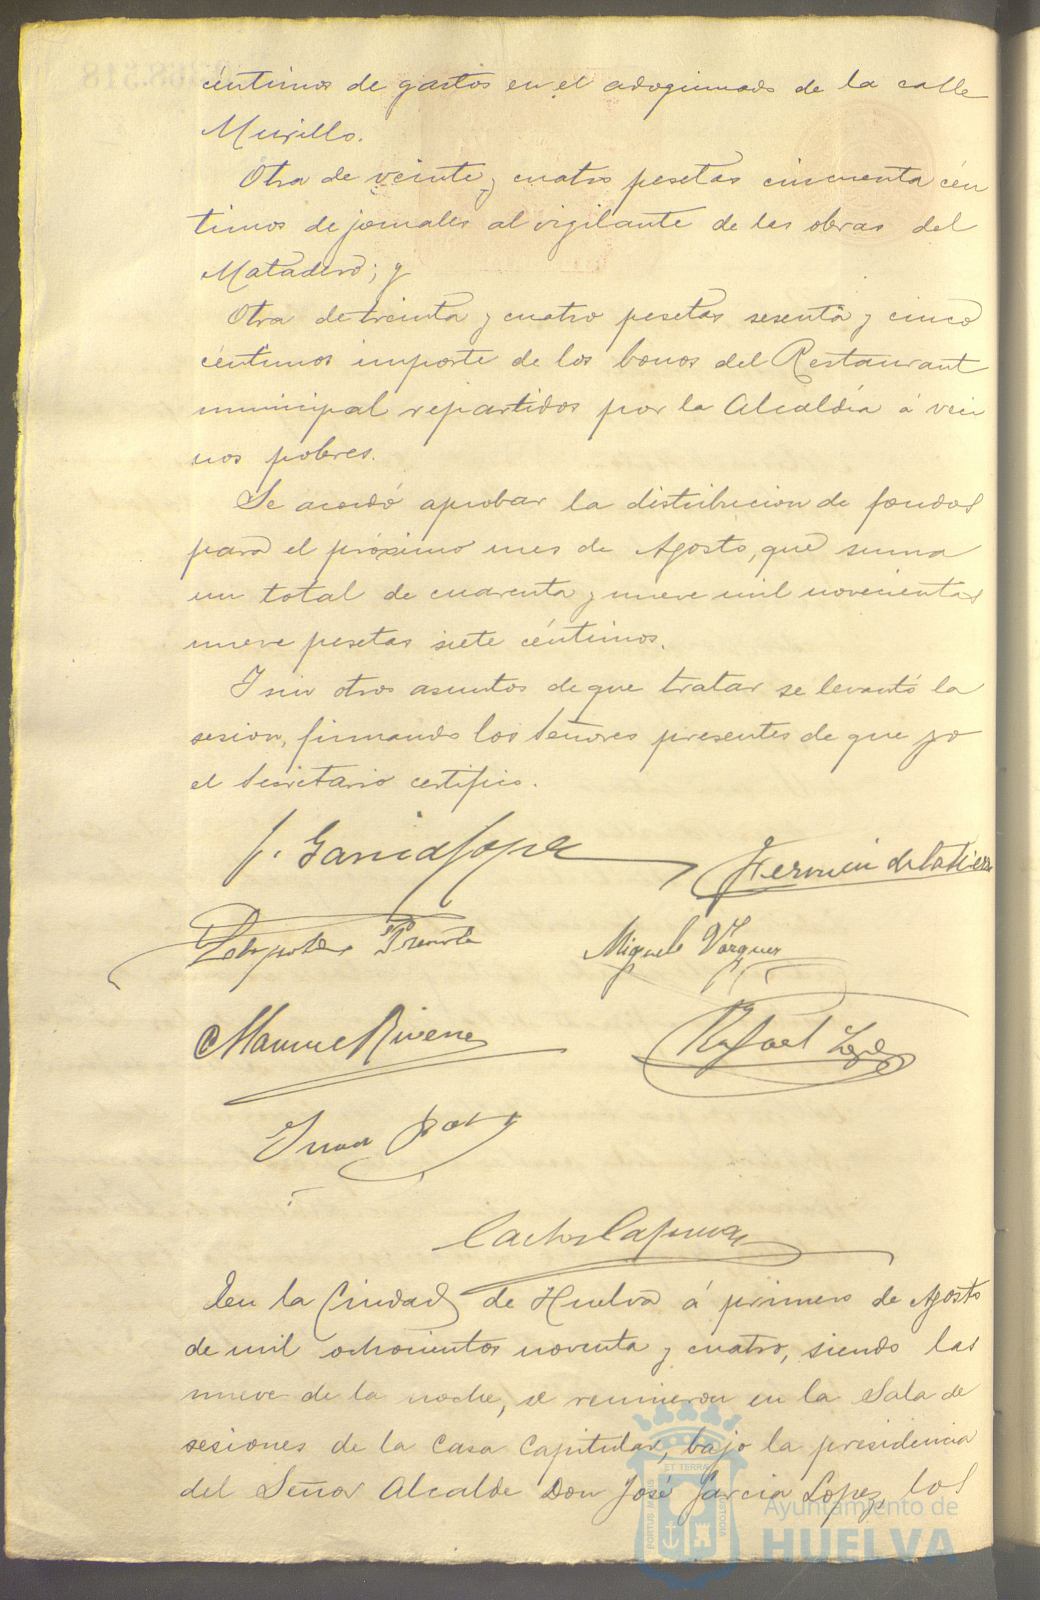 céntimos de gastos en el adoquinado de la calle
Murillo.
Otra de veinte y cuatro pesetas cincuenta cén
timos de jornales al vigilante de las obras del
Matadero; y
Otra de treinta y cuatro pesetas sesenta y cinco
céntimos importe de los bonos del Restaurant
municipal repartidos por la Alcaldía á veci
nos pobres.
Se acordó aprobar la distribucion de fondos
para el próximo mes de Agosto, que suma
un total de cuarenta y nueve mil novecientas
nueve pesetas siete céntimos.
Y sin otros asuntos de que tratar se levantó la
sesion, firmando los Señores presentes de que yo
el Secretario certifico.
J. Garcia Lopez
Fermin de la
Miguel Vazquez
Manuel Rivera
Rafael
Juan
En la Ciudad de Huelva á primero de Agosto
de mil ochocientos noventa y cuatro, siendo las
nueve de la noche, se reunieron en la Sala de
sesiones de la Casa Capitular, bajo la presidencia
del Señor Alcalde Don José Garcia Lopez, los
Ayuntamiento de
HUELVA